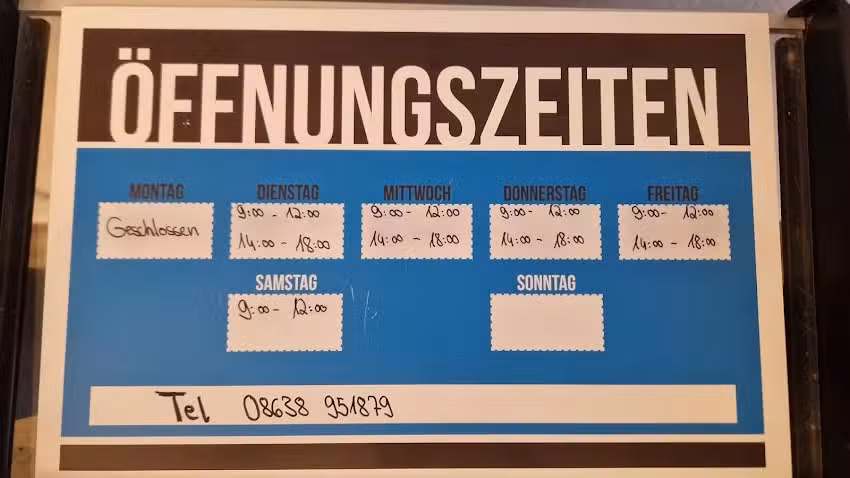 ÖFFNUNGSZEITEN
MONTAG DIENSTAG MITTWOCH DONNERSTAG FREITAG
Geschlossen 9:00 - 12:00 9:00 - 12:00 9:00 - 12:00 9:00 - 12:00
14:00 - 18:00 14:00 - 18:00 14:00 - 18:00 14:00 - 18:00
SAMSTAG SONNTAG
9:00 - 12:00
Tel 08638 951879